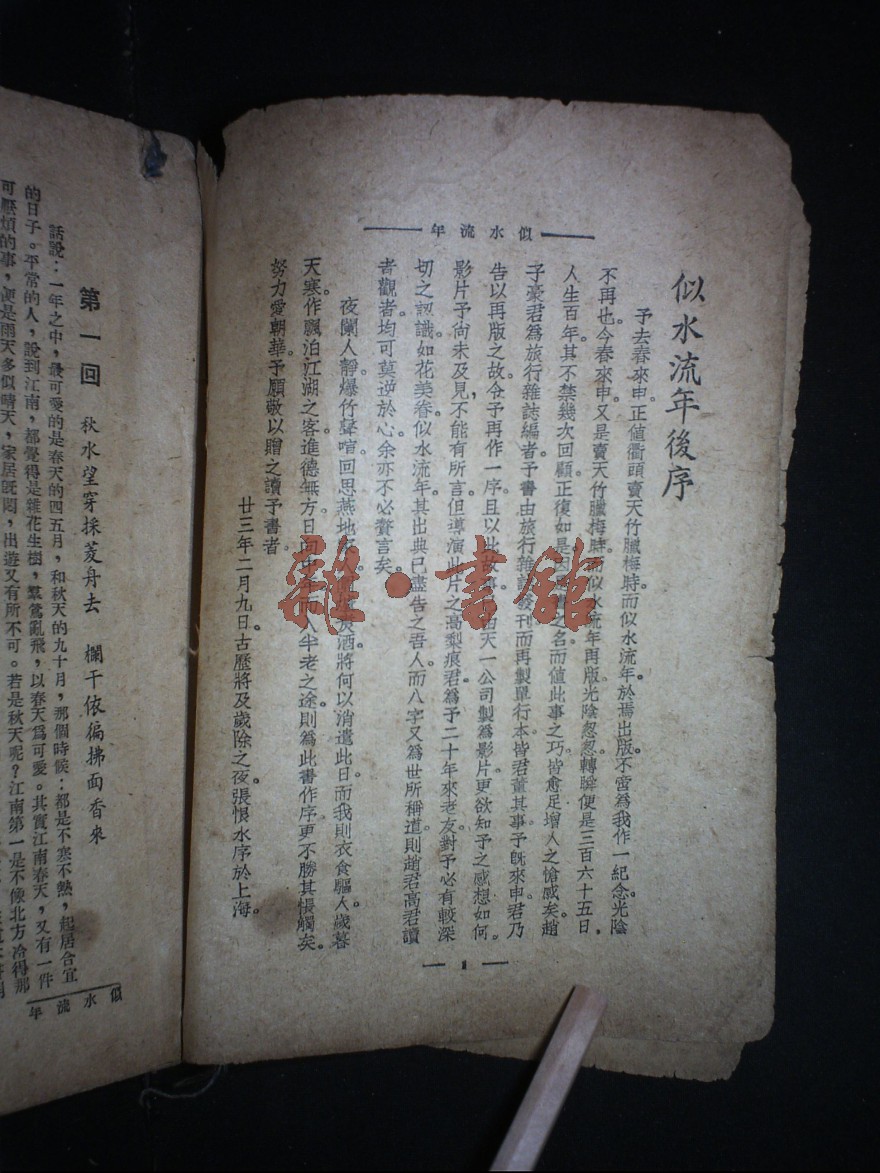 似水流年
似水流年後序
予去春來申。正値衢頭賣天竹臘梅時。而似水流年。於焉出版。不啻爲我作一紀念。光陰
不再也。今春來申。又是賣天竹臘梅時。而似水流年再版。光陰忽忽。轉瞬便是三百六十五日。
人生百年。其不禁幾次回顧。正復如是。因書之名。而値此事之巧。皆愈足增人之愴感矣。趙
子豪君爲旅行雜誌編者。予書由旅行雜誌發刊。而再製單行本。皆君董其事。予旣來申。君乃
告以再版之故。令予再作一序。且以此故事。由天一公司製爲影片。更欲知予之感想如何。
影片予尙未及見。不能有所言。但導演此片之高梨痕君。爲予二十年來老友。對予必有較深
切之認識。如花美眷。似水流年。其出典已盡吿之吾人。而八字又爲世所稱道。則趙君高君讀
者觀者。均可莫逆於心。余亦不必贅言矣。
夜闌人靜。爆竹聲喧。回思燕地家人。圍爐炙酒。將何以消遣此日。而我則衣食驅人。歲暮
天寒。作飄泊江湖之客。進德無方。日向中年而入半老之途。則爲此書作序。更不勝其悵觸矣。
努力愛朝華。予願敬以贈之讀予書者。
廿三年二月九日古歷將及歲除之夜。張恨水序於上海。
1
第一回 秋水望穿採菱舟去 欄干依徧拂面香來
話說：一年之中，最可愛的是春天的四五月，和秋天的九十月，那個時候：都是不寒不熱，起居合宜
的日子。平常的人，說到江南，都覺得是雜花生樹，羣鶯亂飛，以春天爲可愛。其實江南春天，又有一件
可厭煩的事，便是雨天多似晴天，家居旣悶，出遊又有所不可。若是秋天呢？江南第一是不像北方冷得那
似水流年
雜·書館